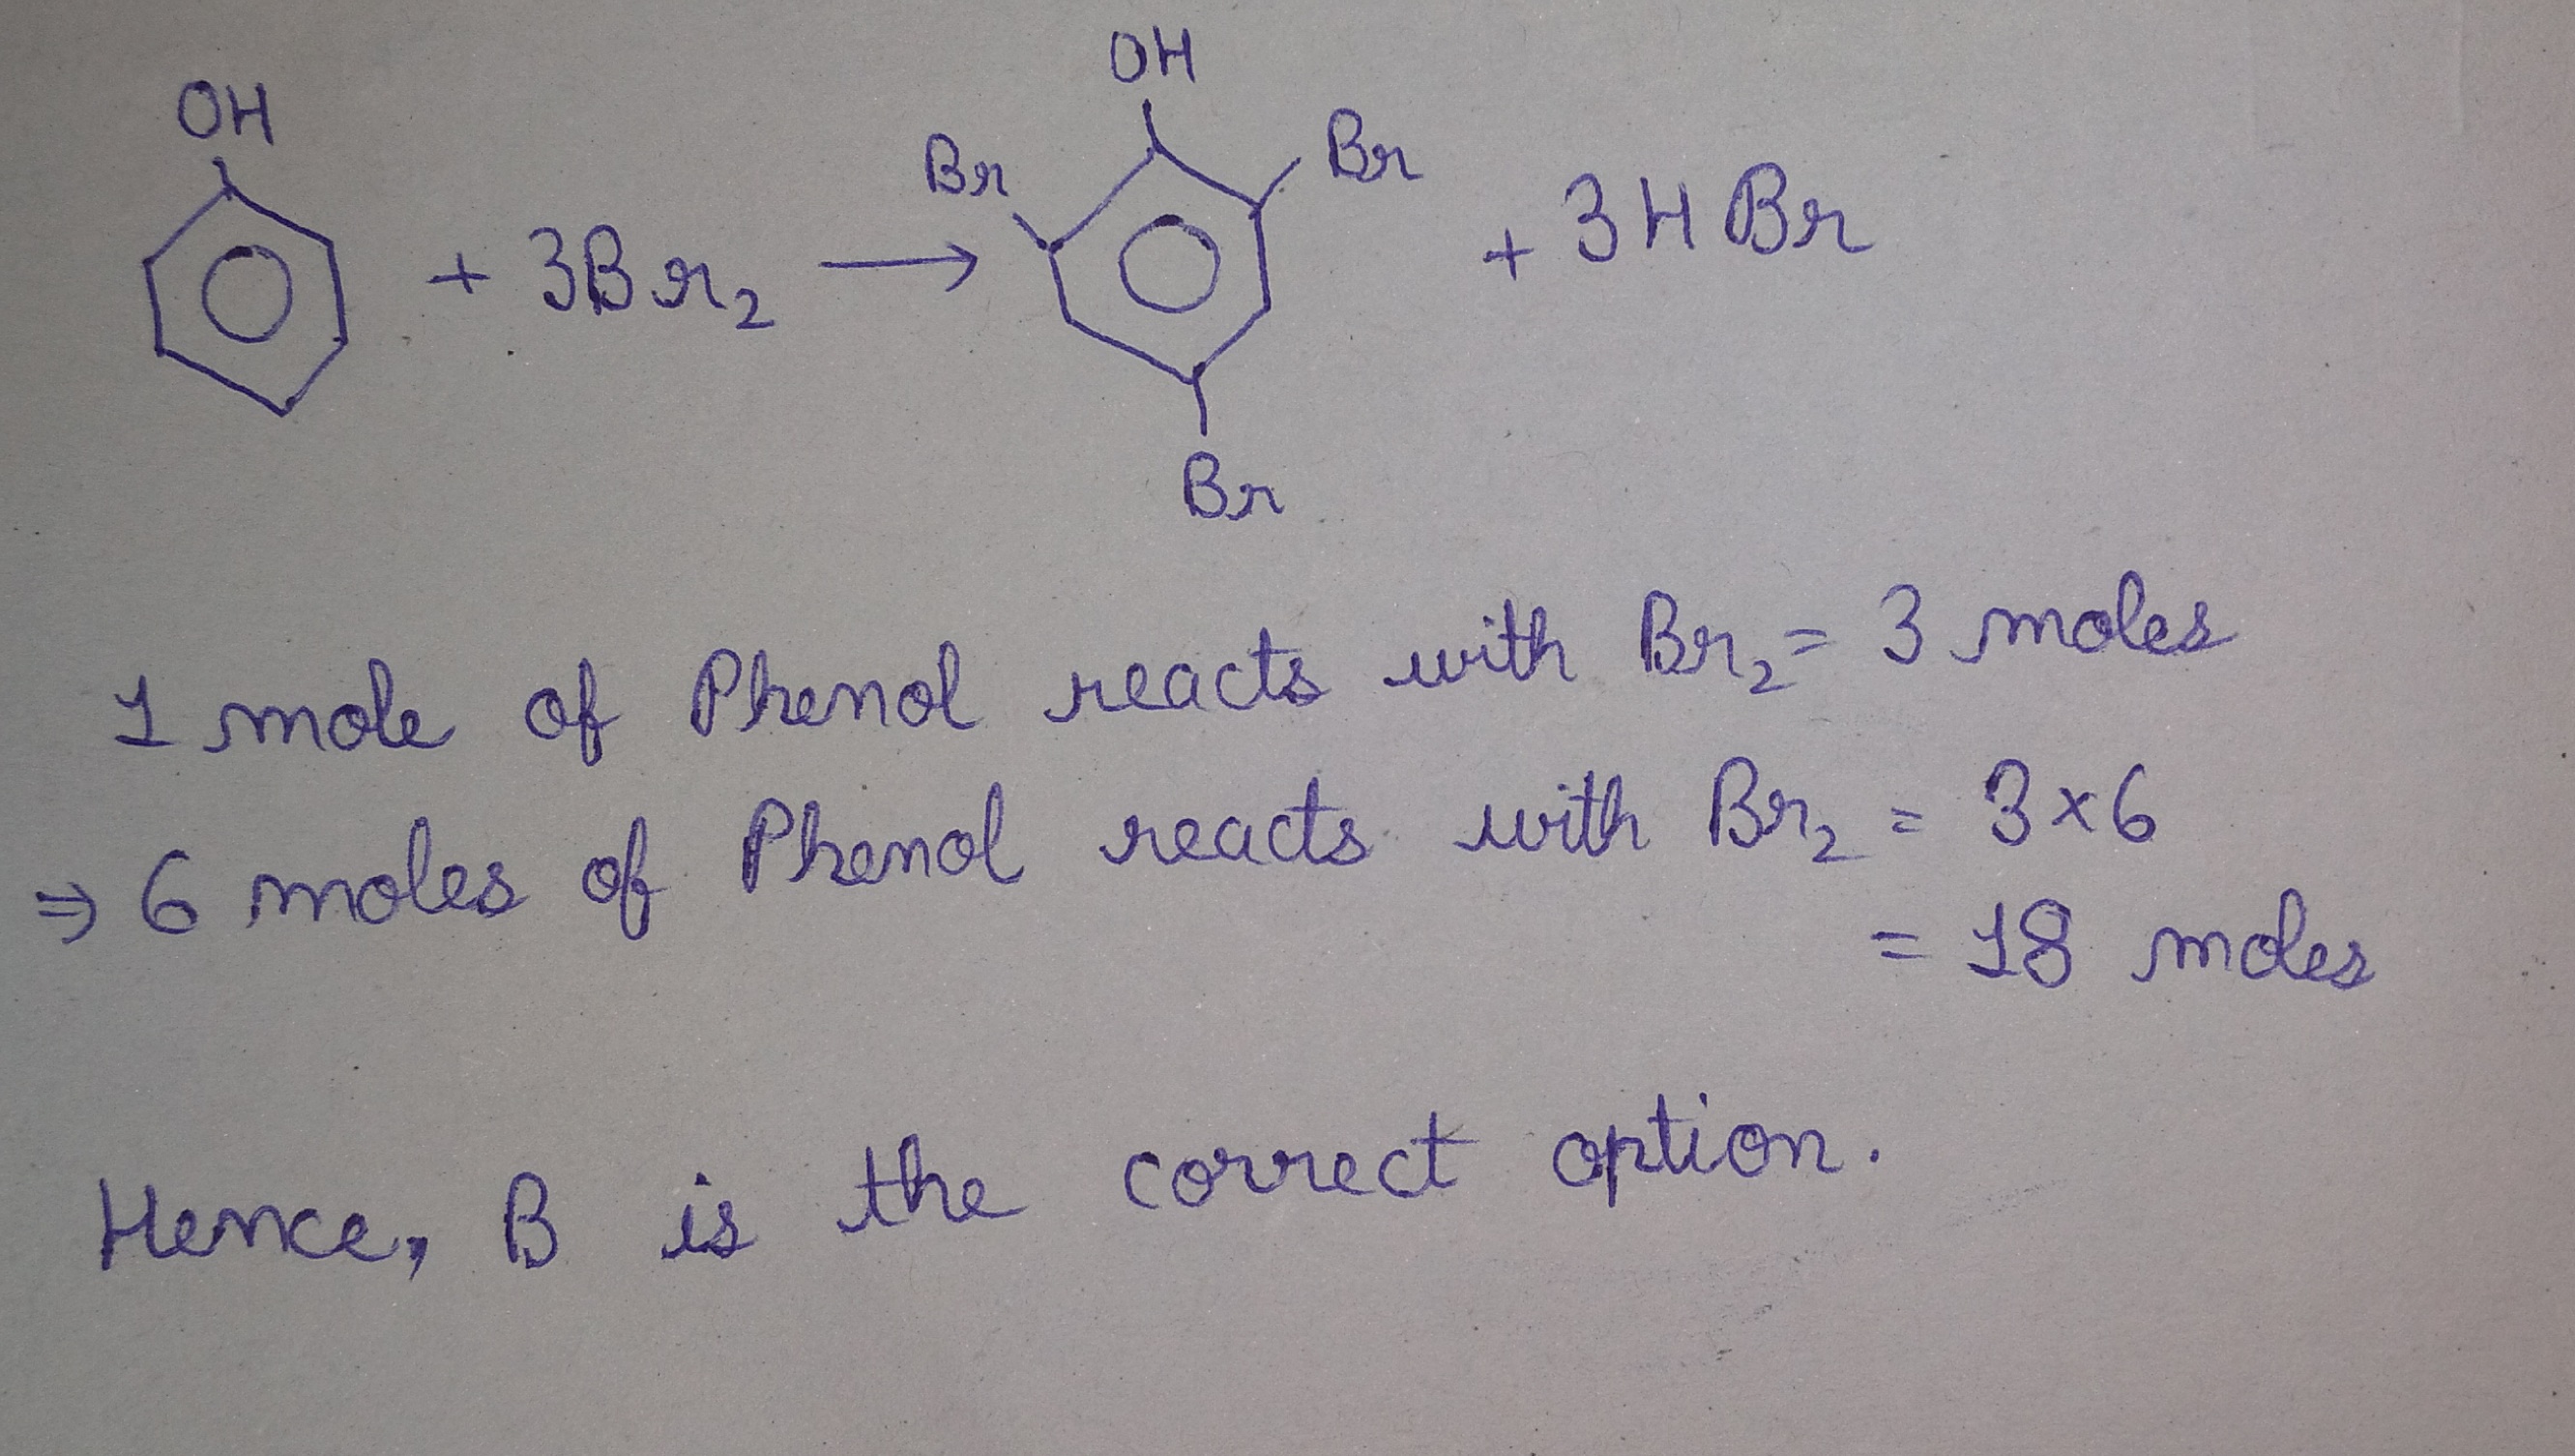 OH
OH
Br
Br
+ 3Br₂ → + 3HBr
Br
1 mole of Phenol reacts with Br₂ = 3 moles
⇒ 6 moles of Phenol reacts with Br₂ = 3×6
= 18 moles
Hence, B is the correct option.